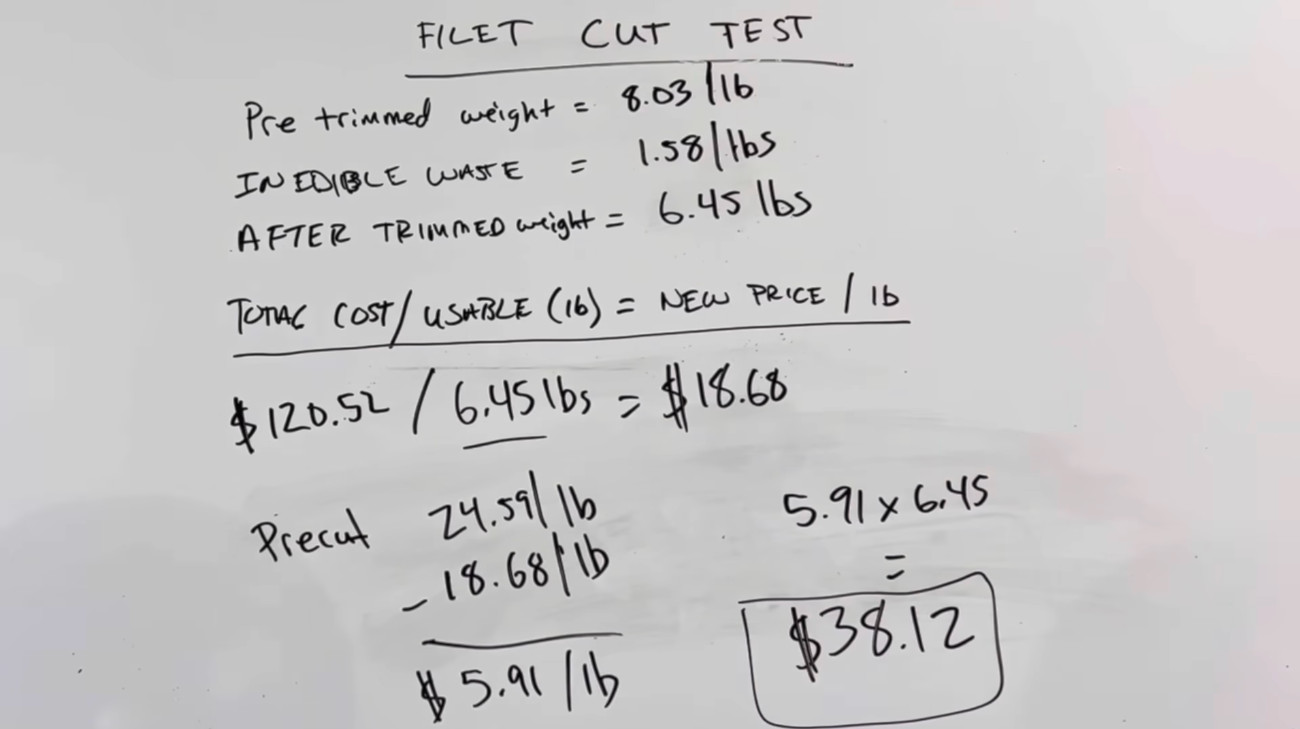 FILET CUT TEST
Pre trimmed weight = 8.03/lb
INEDIBLE WASTE = 1.58/lbs
AFTER TRIMMED weight = 6.45 lbs
TOTAL COST/USABLE (lb) = NEW PRICE / lb
$120.52 / 6.45 lbs = $18.68
Precut 24.59/lb
- 18.68/lb
$5.91/lb
5.91 x 6.45
=
$38.12